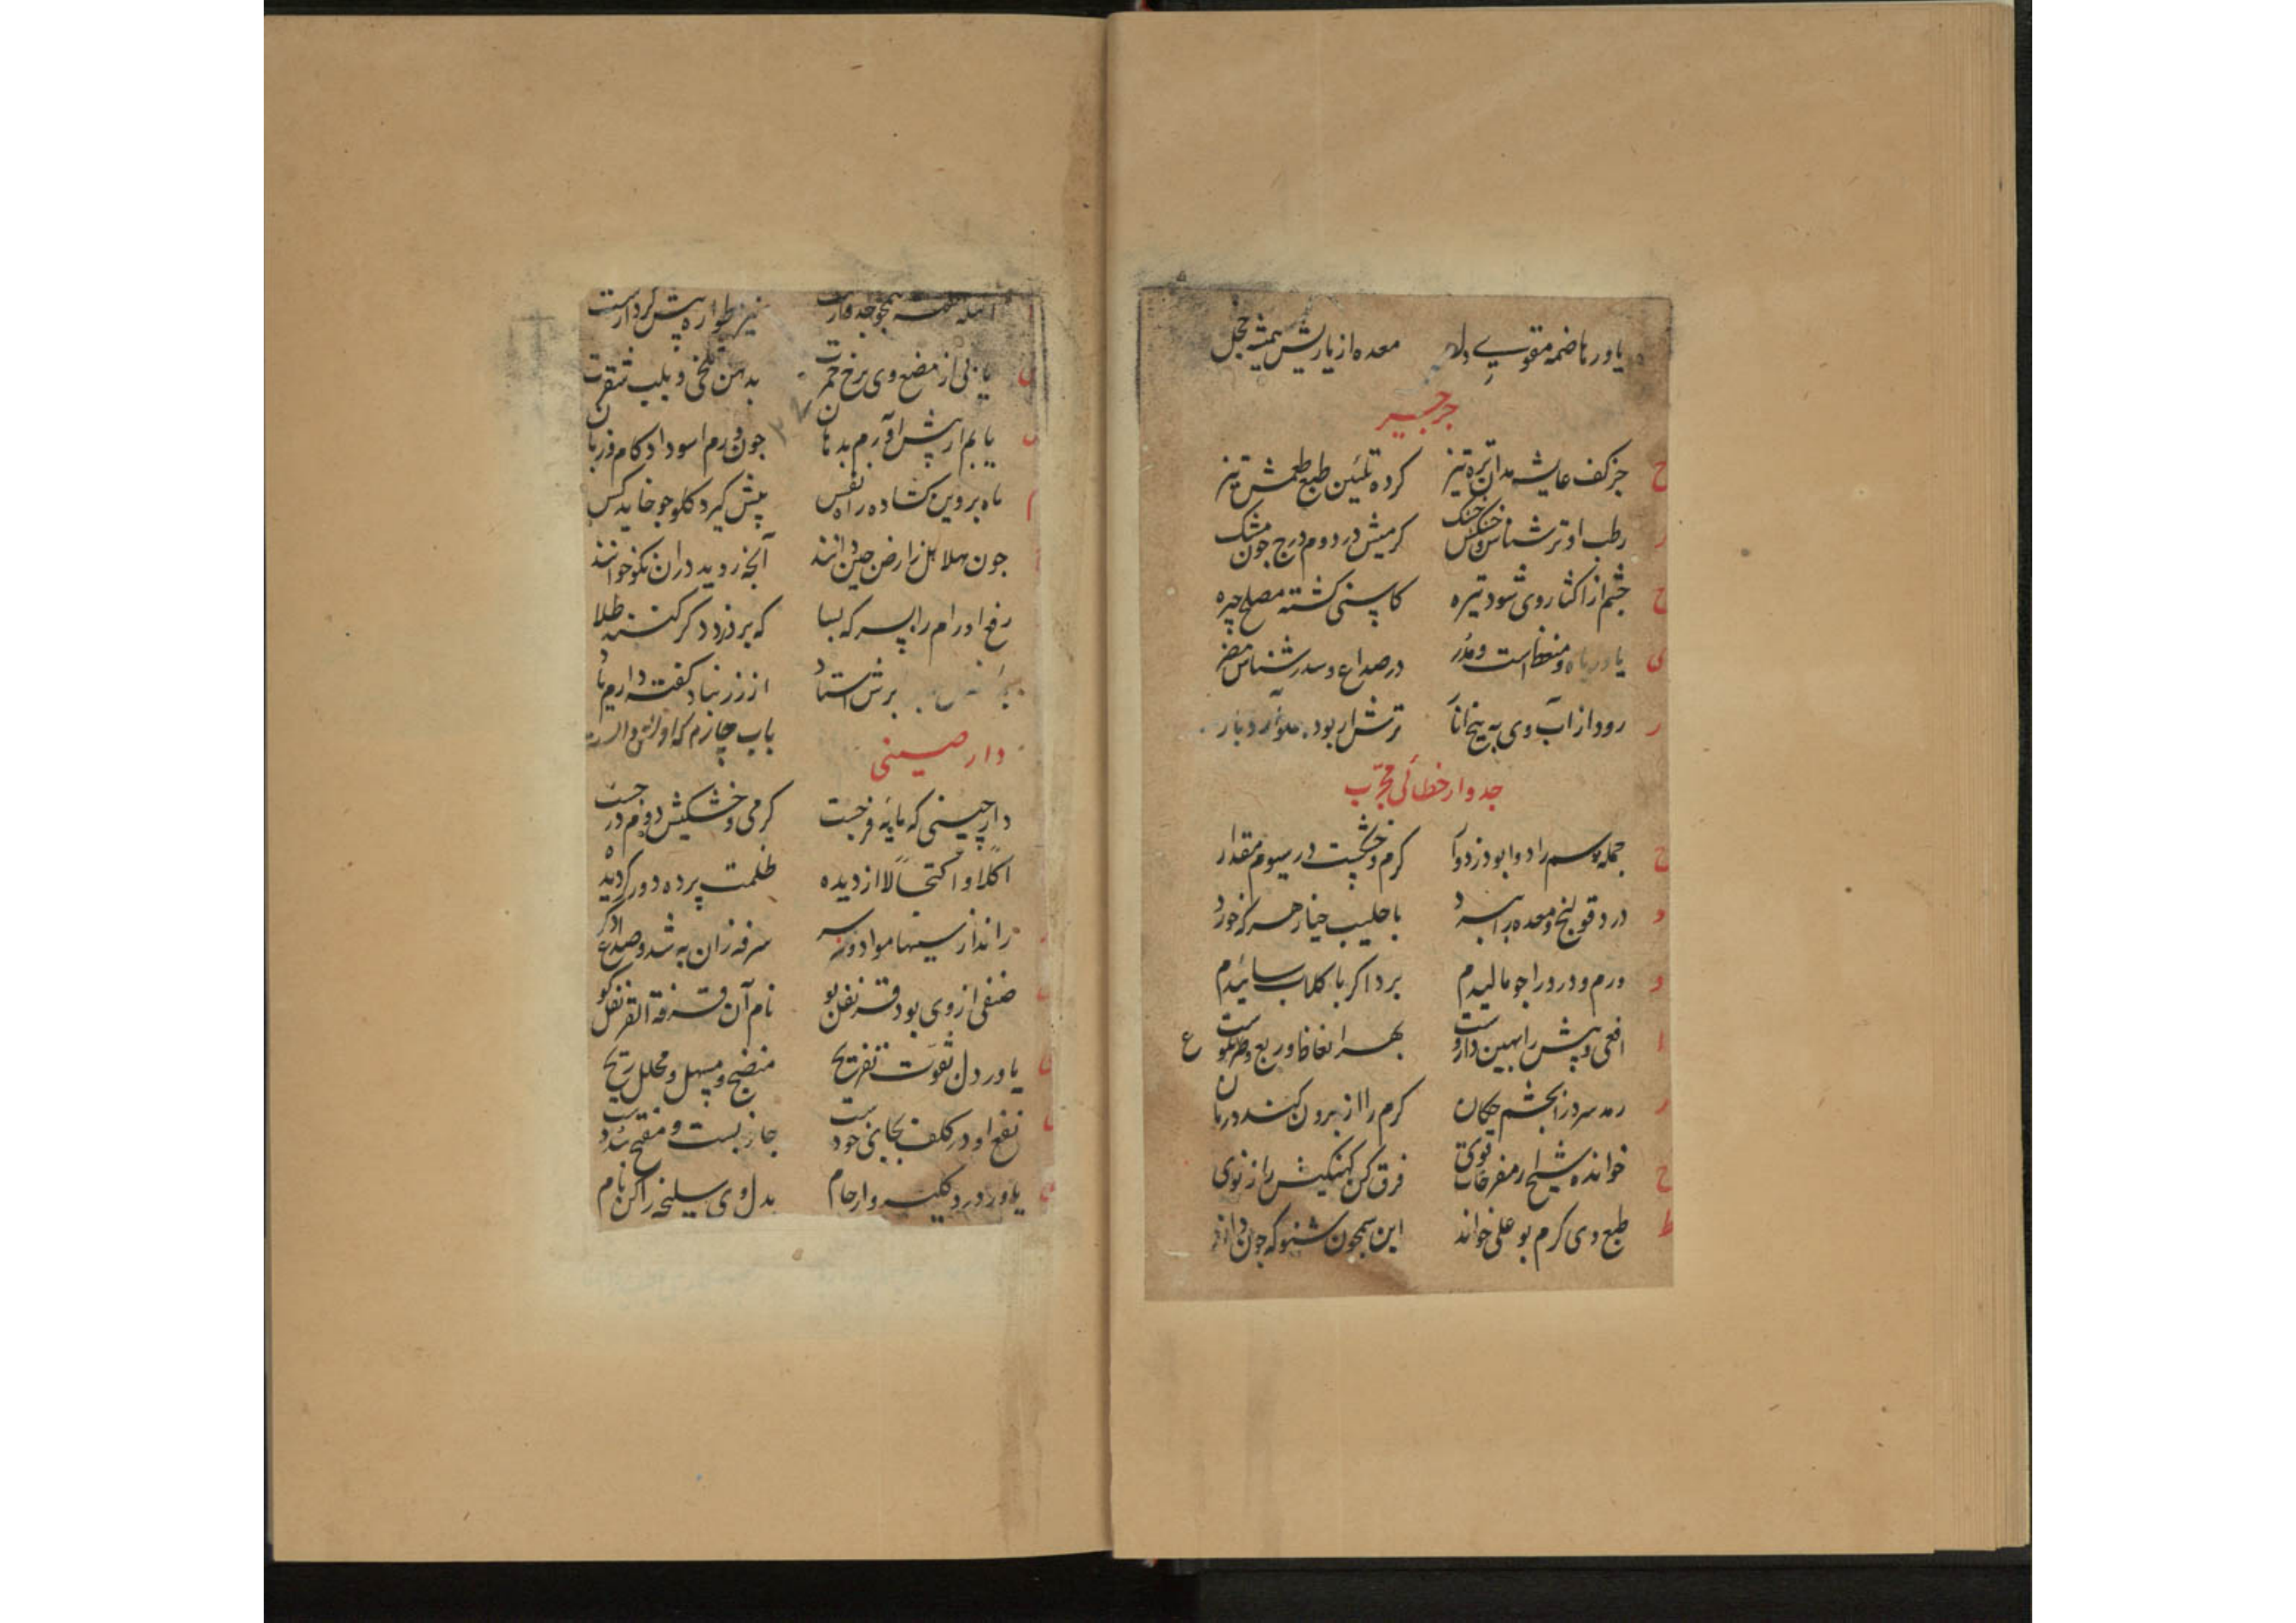 یاور هاضمه مقوی دل معده از یاریش همیشه خجل
جرجیر
ح جز کف عایشه مدان تره تیز کرده تلئین طبع طعمش تیز
ر رطب او تر شناس و خشکش خشک کرمیش در دوم درج جون مشک
ح چشم از اکثار وی شود تیره کاسنی کشته مصلح چیره
ی یاور باه و منعظ است و مدر در صداع و سدر شناس مضر
ر رود از آب وی به بیخ انار ترش ار بود
جدوار خطائی مجرب
ج جمله سم را دوا بود زدوار کرم و خشکست در سیوم مقدار
د درد قولنج و معده را ببرد با حلیب خیار هر که خورد
و ورم و درد را جو مالیدم برد اکر با کلاب سائیدم
ا افعی و پیش را بهین داروست بهر انعاظ و ربع و طرنکوست ع
ر رمد سرد را بچشم چکان کرم را از برون کند درمان
خ خوانده شیخ از مفرحات قوی فرق کن کهنکیش را ز نوی
ط طبع وی کرم بو علی خواند این سخن شنو که جون داند
همجو جدوارست نیز طواره پیش کردارست
ی یابی از مضغ وی برخ حمرت بدهن تلخی و بلب شقرت
ی یابم ار پیش اورم بدهان جون ورم اسود اد کام و زبان
م ماه بروین کشاده راه نفس پیش کیرد کلو جو خاید کس
جون هلاهل ز ارض چین دانند آنجه روید دران نکو خوانند
رفع اورام را ببر که بسا که برد زود کر کنند طلا
برش استاد از زرنباد کفته دارم یاد
دار صینی باب چارم که
دارچینی که مایه فرجست کرمی و خشکیش دوم درجست
اکلا و اکتحالا از دیده ظلمت پرده دور کردیده
راند از سینها مواد و سرفه زان به شد و صداع
صنفی از وی بود قرنفل بو نام آن قرفة القرنفل کو
ی یاور دل بقوت تفریح منضج و مسهل و محلل ریح
ن نفع او در کلف بجای خودست جاذبست و مفتح سددست
ی یاور درد کلیه و ارحام بدل وی سلیخه را کن نام